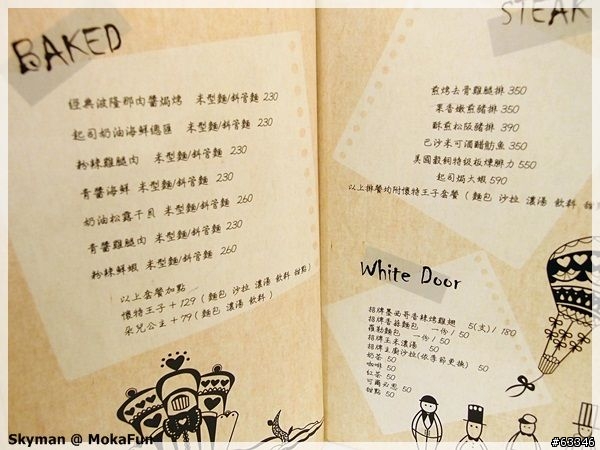 BAKED
經典波隆那肉醬焗烤 米型麵/斜管麵 230
起司奶油海鮮總匯 米型麵/斜管麵 230
粉辣雞腿肉 米型麵/斜管麵 230
青醬海鮮 米型麵/斜管麵 230
奶油松露干貝 米型麵/斜管麵 260
青醬雞腿肉 米型麵/斜管麵 230
粉辣鮮蝦 米型麵/斜管麵 260
以上套餐加點
懷特王子 + 129 ( 麵包 沙拉 濃湯 飲料 甜點 )
朵兒公主 + 79 ( 麵包 濃湯 飲料 )
STEAK
煎烤去骨雞腿排 350
果香嫩煎豬排 350
酥煎松阪豬排 390
巴沙米可酒醋魴魚 350
美國穀飼特級板煉腓力 550
起司焗大蝦 590
以上排餐均附懷特王子套餐 ( 麵包 沙拉 濃湯 飲料 甜
White Door
招牌墨西哥香辣烤雞翅 5(支) / 180
招牌香蒜麵包 一份 / 50
羅勒麵包 一份 / 50
招牌玉米濃湯 50
招牌主廚沙拉(依季節更換) 50
奶茶 50
咖啡 50
紅茶 50
可爾必思 50
甜點 50
Skyman @ MokaFun
#63346